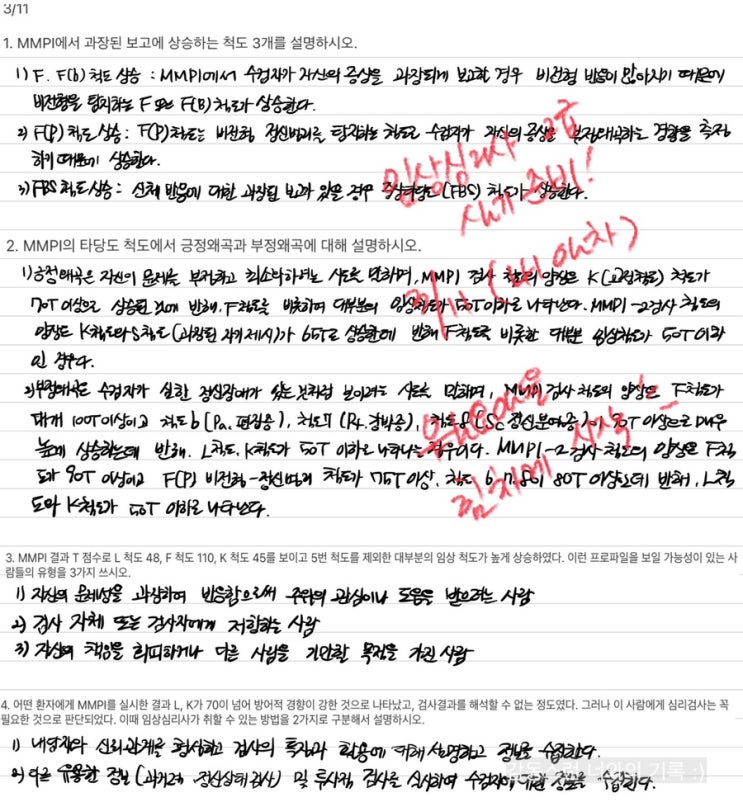 3/11
1. MMPI에서 과장된 보고에 상승하는 척도 3개를 설명하시오.
1) F. F(b) 척도 상승 : MMPI에서 수검자가 자신의 증상을 과장되게 보고할 경우 비전형 반응이 많아지기 때문에
비전형을 탐지하는 F 또는 F(B) 척도가 상승한다.
2) F(P) 척도 상승 : F(P) 척도는 비전형 정신병리를 탐지하는 척도로 수검자가 자신의 증상을 부정왜곡하는 경향을 측정
하기 때문에 상승한다.
3) FBS 척도 상승 : 신체 반응에 대한 과장된 보고가 있을 경우 증상타당도(FBS) 척도가 상승한다.
임상심리사 2급
실기 준비!
3/11 (
월요일을
힘차게 시작
2. MMPI의 타당도 척도에서 긍정왜곡과 부정왜곡에 대해 설명하시오.
1) 긍정왜곡은 자신의 문제를 부정하고 최소화하려는 시도를 말하며, MMPI 검사 척도의 양상은 K(교정척도) 척도가
70T 이상으로 상승된 것에 반해, F척도를 비롯하여 대부분의 임상척도가 50T 이하로 나타난다. MMPI-2검사 척도의
양상도 K척도와 S척도(과장된 자기제시)가 65T로 상승한데 반해 F척도를 비롯한 대부분 임상척도가 50T 이하
인 경우다.
2) 부정왜곡은 수검자가 심한 정신장애가 있는 것처럼 보이려는 시도를 말하며, MMPI 검사 척도의 양상은 F척도가
대개 100T 이상이고 척도 6 (Pa. 편집증), 척도 7 (Pt. 강박증), 척도 8 (Sc 정신분열증)이 90T 이상으로 매우
높게 상승하는데 반해, L척도, K척도가 50T 이하로 나타나는 경우이다. MMPI-2 검사 척도의 양상은 F척
도가 90T 이상이고 F(P) 비전형-정신병리 척도가 75T 이상, 척도 6, 7, 8이 80T 이상인데 반해, L척
도와 K척도가 50T 이하로 나타난다.
3. MMPI 결과 T 점수로 L 척도 48, F 척도 110, K 척도 45를 보이고 5번 척도를 제외한 대부분의 임상 척도가 높게 상승하였다. 이런 프로파일을 보일 가능성이 있는 사
람들의 유형을 3가지 쓰시오.
1) 자신의 문제성을 과장하여 반응함으로써 주위의 관심이나 도움을 받으려는 사람
2) 검사 자체 또는 검사자에게 저항하는 사람
3) 자신의 책임을 회피하거나 다른 사람을 기만할 목적을 가진 사람
4. 어떤 환자에게 MMPI를 실시한 결과 L, K가 70이 넘어 방어적 경향이 강한 것으로 나타났고, 검사결과를 해석할 수 없는 정도였다. 그러나 이 사람에게 심리검사는 꼭
필요한 것으로 판단되었다. 이때 임상심리사가 취할 수 있는 방법을 2가지로 구분해서 설명하시오.
1) 내담자와 신뢰관계를 형성하고 검사의 특징과 활용에 대해 설명하고 정보를 수집한다.
2) 다른 유용한 정보 (과거력, 정신상태검사) 및 투사적 검사를 실시하여 수검자에 대한 정보를 수집한다.
감동스런 너와의 기록 :)